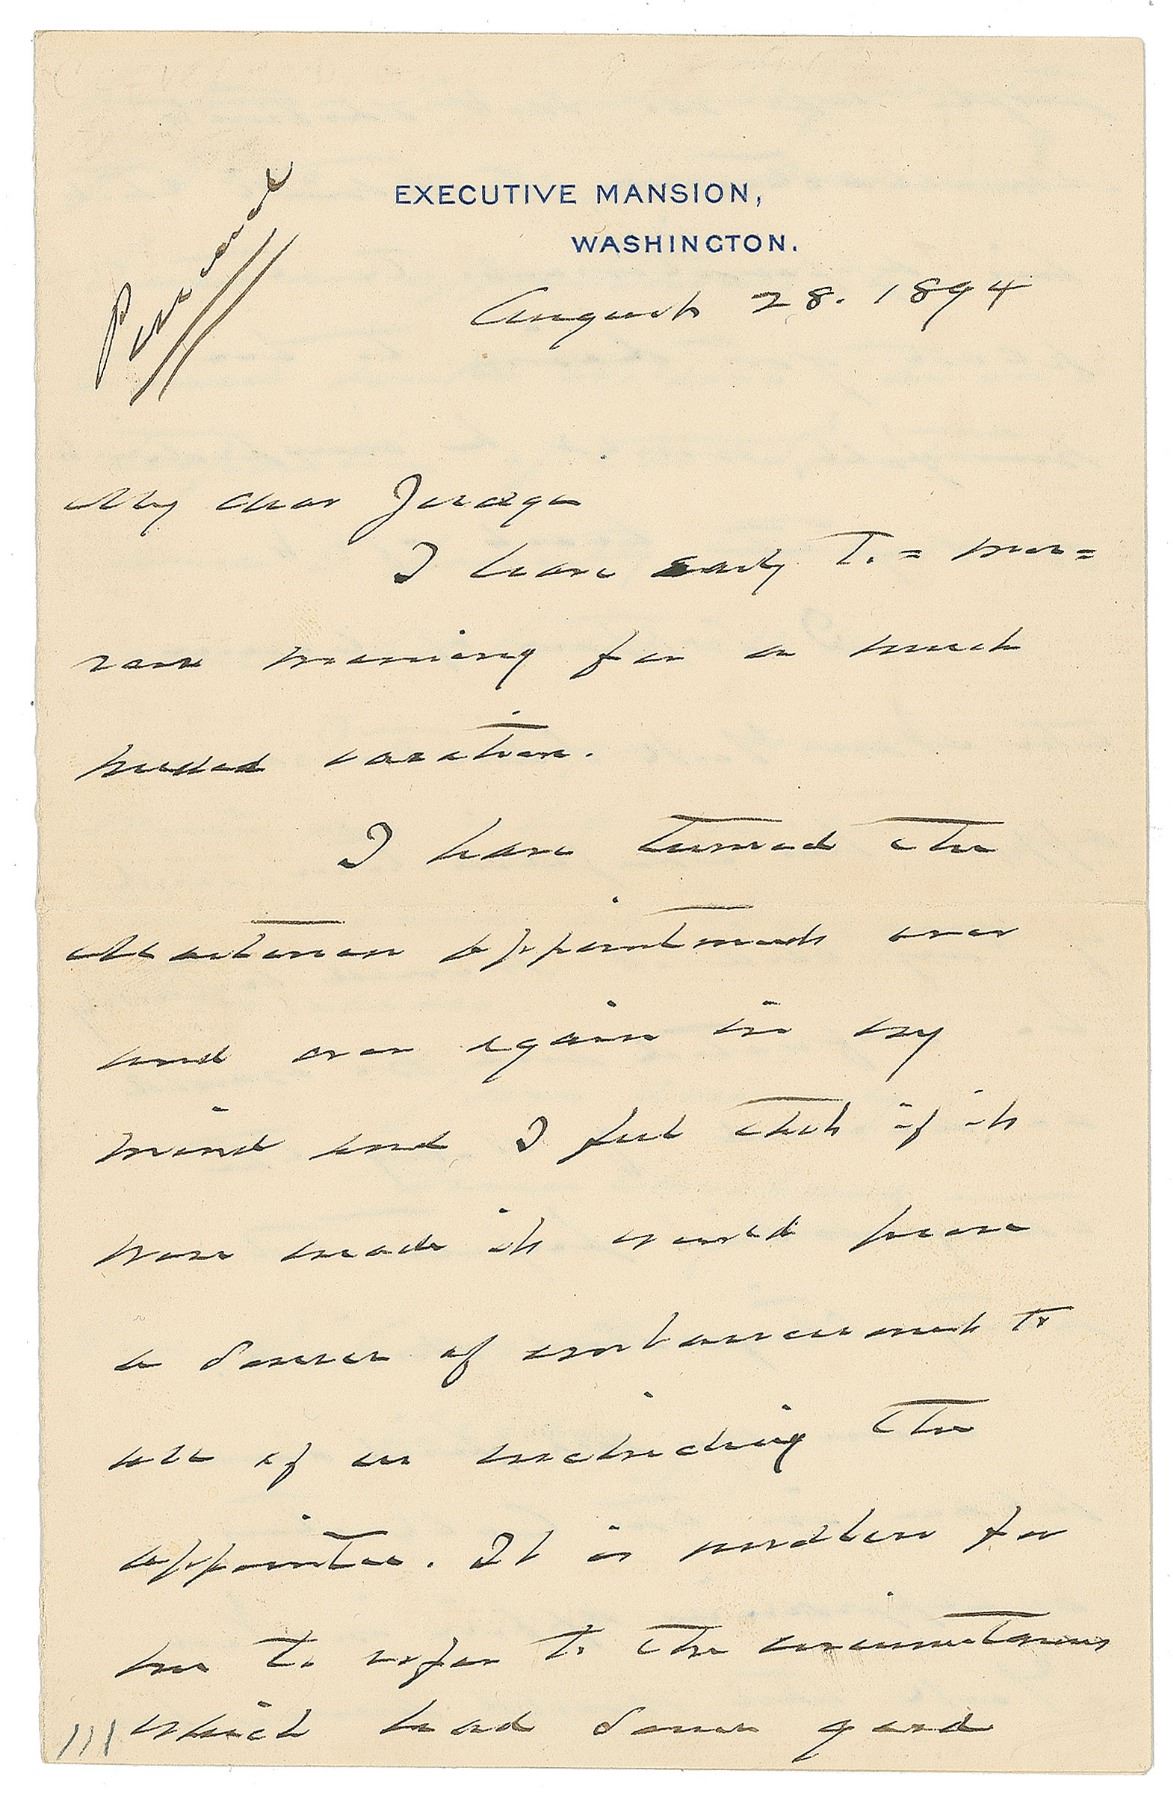 Personal
EXECUTIVE MANSION,
WASHINGTON.
August 28. 1894
My dear Judge
I leave early to=mor=
row morning for a much
needed vacation.
I have turned the
appointment over
and over again in my
mind and I feel that if it
were made it would prove
a source of embarrassment to
all of us including the
appointee. It is needless for
me to refer to the circumstances
which lead some good
111